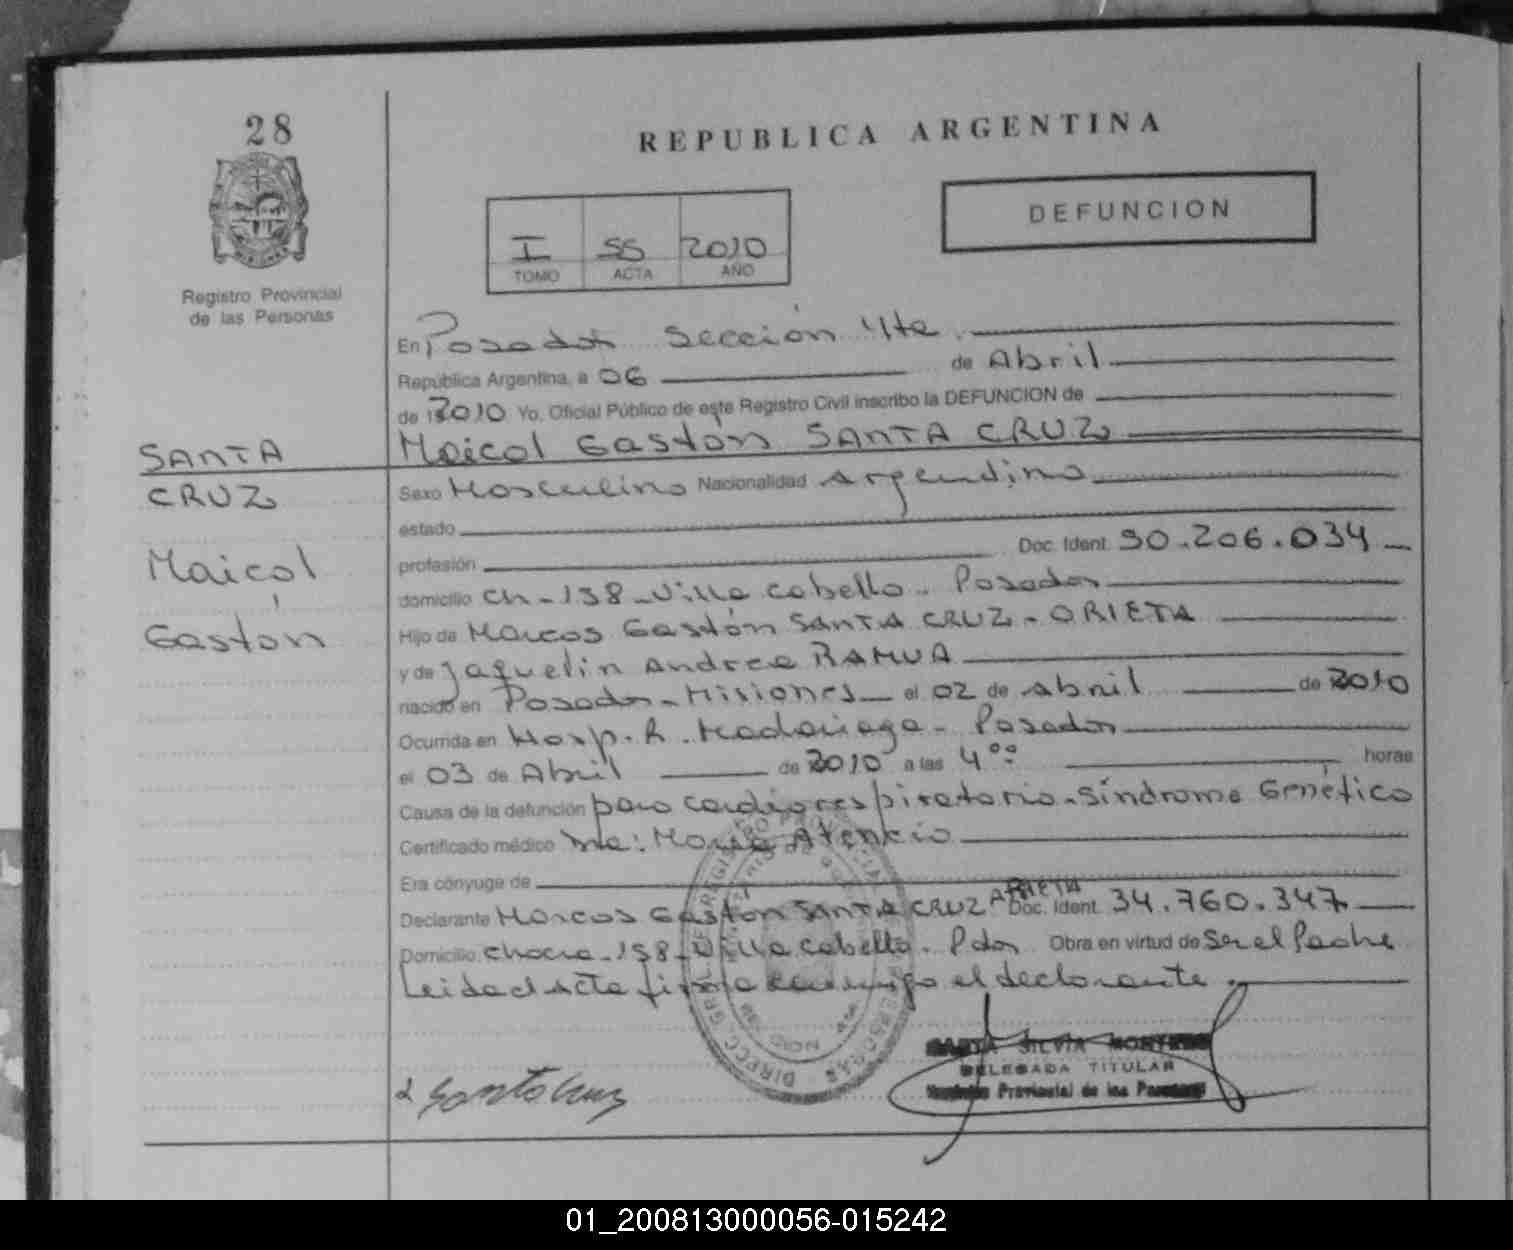 28
REPUBLICA ARGENTINA
DEFUNCION
I 55 2010
TOMO ACTA AÑO
Registro Provincial
de las Personas
En Posadas Sección 4ta.
República Argentina, a 06 de Abril
de 2010 Yo, Oficial Público de este Registro Civil inscribo la DEFUNCION de
Maicol Gastón SANTA CRUZ
SANTA
CRUZ
Maicol
Gastón
Sexo Masculino Nacionalidad Argentino
estado
profesión Doc. Ident. 50.206.034
domicilio Ch-138-Villa Cabello. Posadas
Hijo de Marcos Gastón SANTA CRUZ - ORIETA
y de Jaquelin Andrea RAMUA
nacido en Posadas - Misiones - el 02 de Abril de 2010
Ocurrida en Hosp. R. Madariaga - Posadas
el 03 de Abril de 2010 a las 4:00 horas
Causa de la defunción paro cardiorespiratorio - Síndrome Genético
Certificado médico Dra: María Atencio
Era cónyuge de
Declarante Marcos Gastón SANTA CRUZ ORIETA Doc. Ident. 34.760.347
Domicilio Chacra - 138 - Villa Cabello. Pdas Obra en virtud de Ser el Padre
Leida el Acta firma conmigo el declarante.
Santa Cruz
SILVIA
DELEGADA TITULAR
Provincial de las Personas
01_200813000056-015242